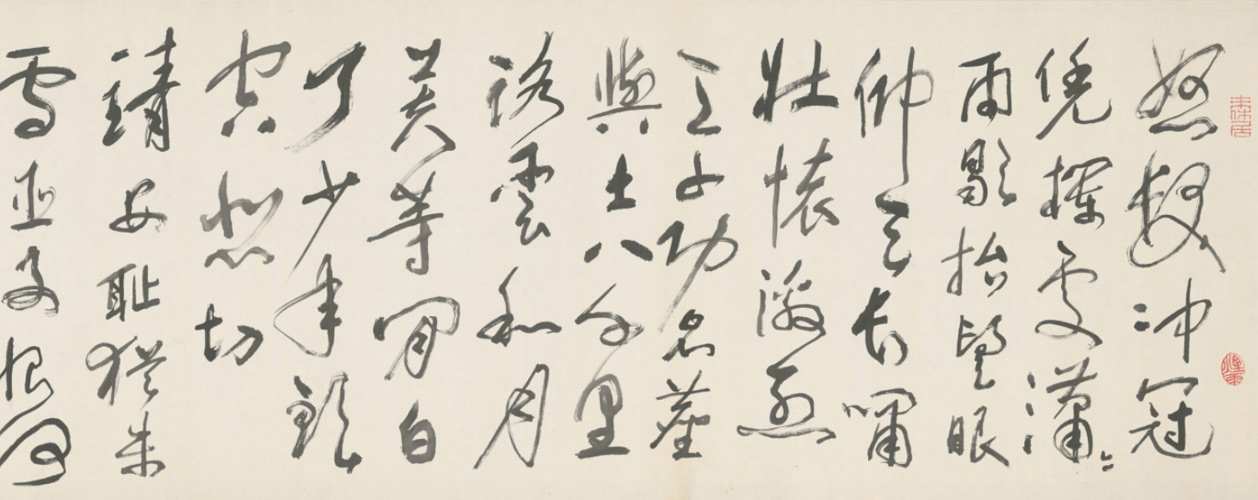 怒髮冲冠
凭欄處瀟々
雨歇抬望眼
仰天長嘯
壯懷激烈
三十功名塵
與土八千里
路雲和月
莫等閒白
了少年頭
空悲切
靖康耻猶未
雪臣子恨何